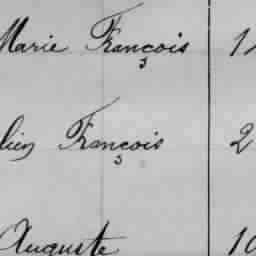 Marie François 1
lien François 2
Auguste 10